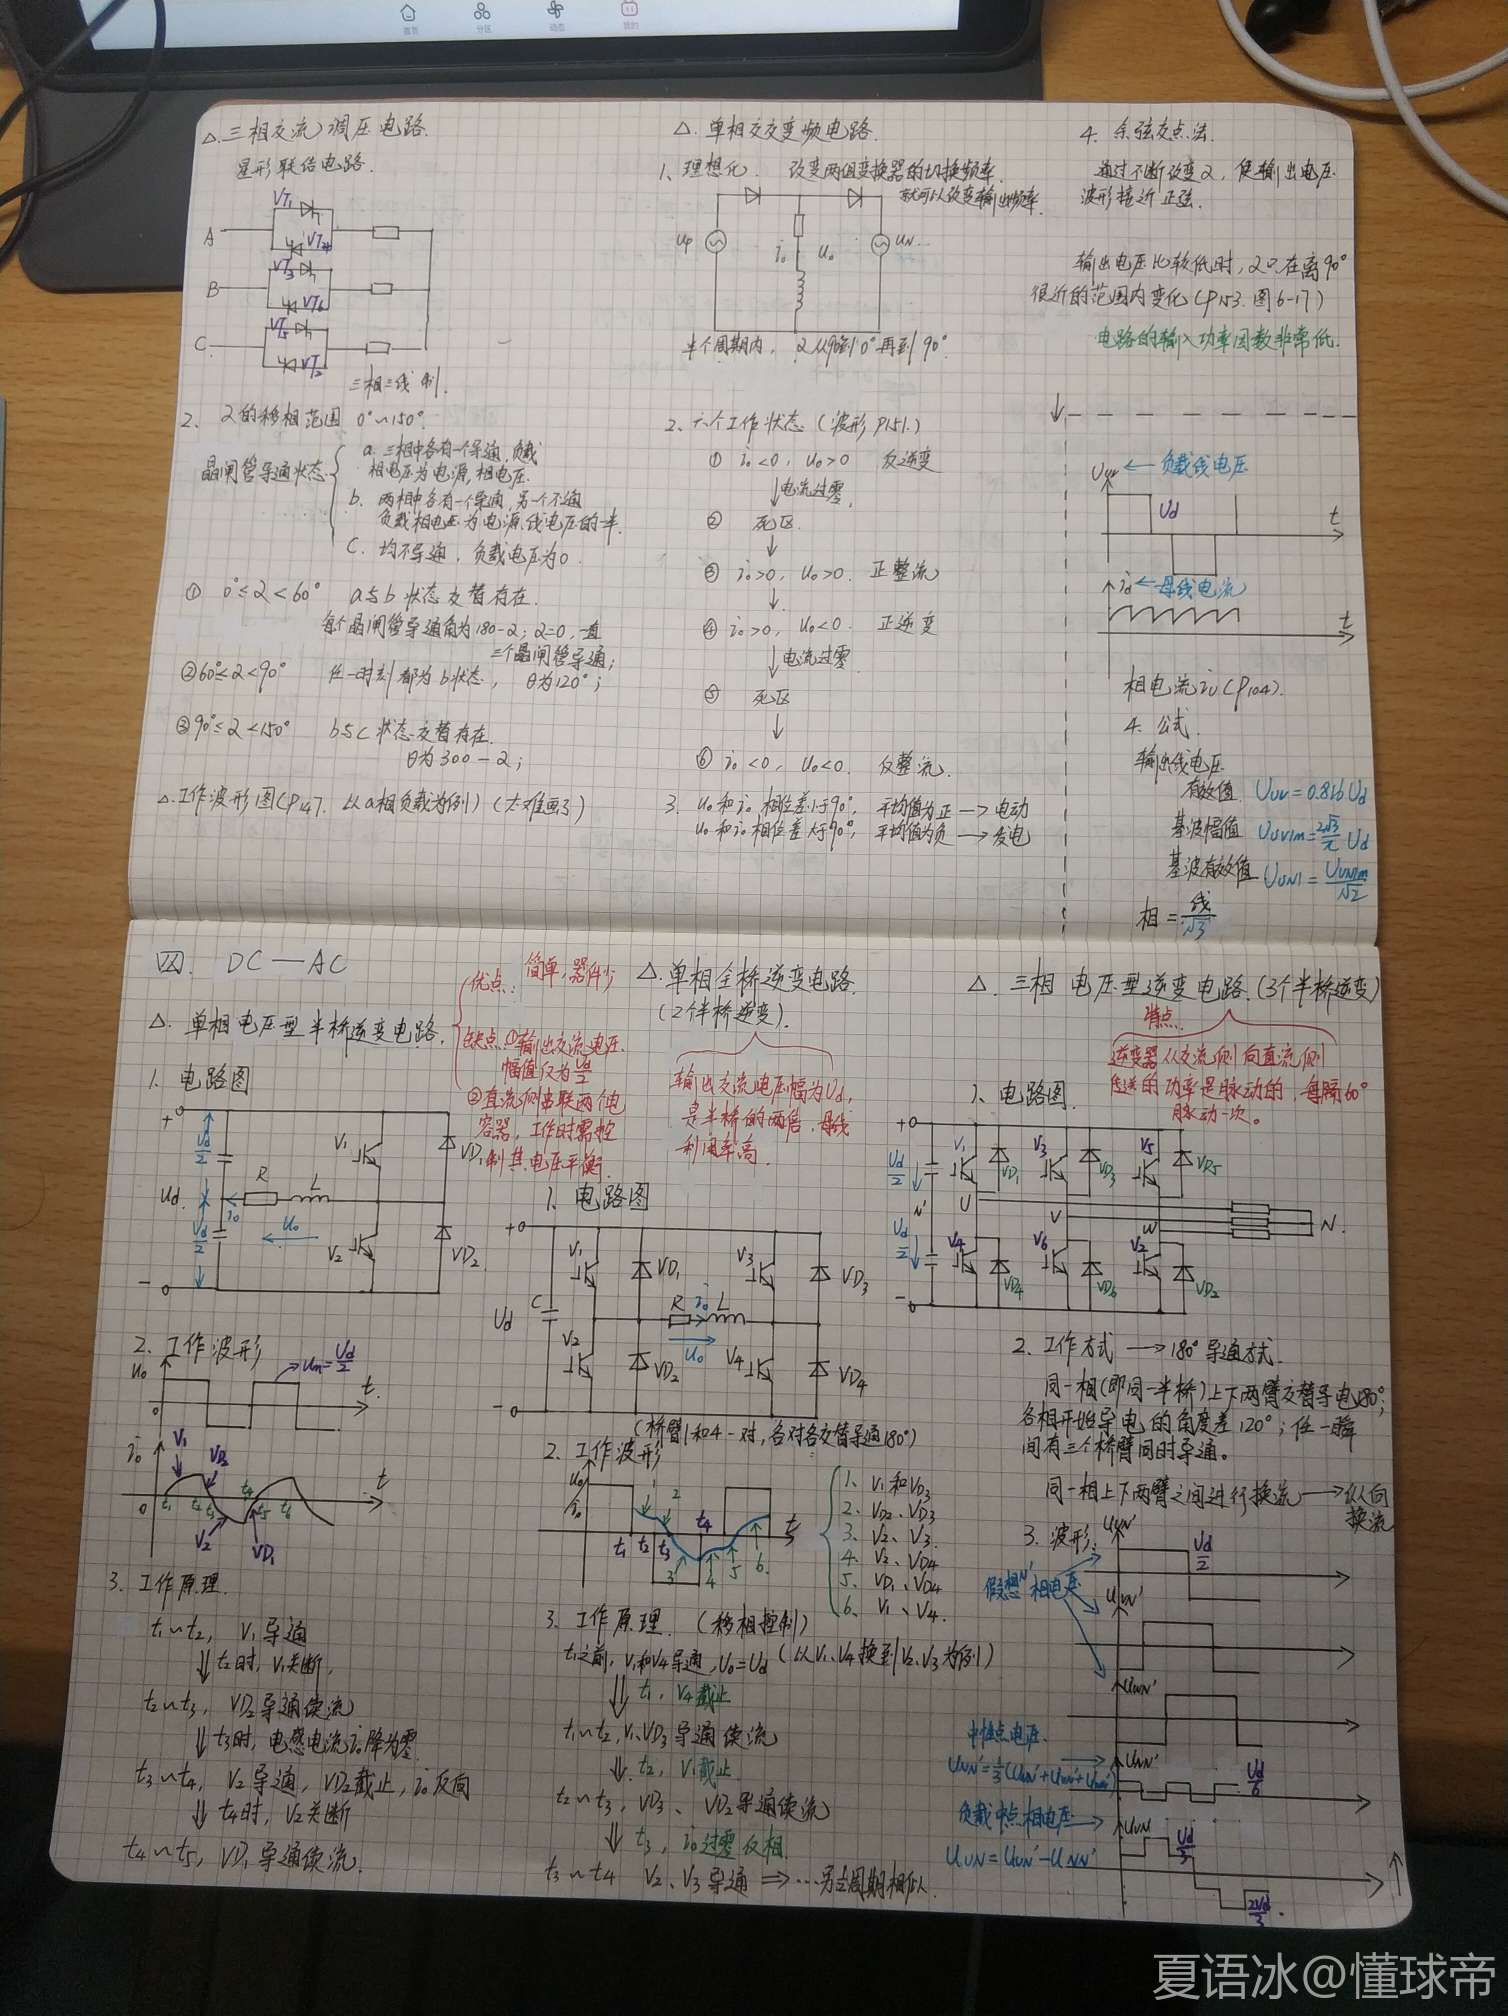 首页 分区 动态 我的
△.三相交流调压电路.
星形联结电路.
VT1
VT4
A
VT3
VT6
B
VT5
VT2
C
三相三线制.
2. α的移相范围 0°~150°.
晶闸管导通状态
a. 三相中各有一个导通,负载
相电压为电源相电压.
b. 两相中各有一个导通,另一个不通
负载相电压为电源线电压的一半.
C. 均不导通,负载电压为0.
① 0°≤α<60° a与b状态交替存在.
每个晶闸管导通角为180-α; α=0,一直
三个晶闸管导通;
②60°≤α<90° 任一时刻都为b状态, θ为120°;
③90°≤α<150° b与c状态交替存在.
θ为300-2α;
△.工作波形图(P147. 以a相负载为例)(太难画了)
△. 单相交交变频电路.
1、理想化. 改变两组变换器的切换频率
就可以改变输出频率.
up
io
uo
uN
半个周期内, α从90°到0°再到90°.
2、六个工作状态(波形P151.)
① io<0, uo>0 反逆变
电流过零.
② 死区.
③ io>0, uo>0. 正整流
④ io>0, uo<0. 正逆变
电流过零
⑤ 死区
⑥ io<0, uo<0. 反整流.
3. uo和io相位差小于90°, 平均值为正→电动
uo和io相位差大于90°, 平均值为负→发电
4. 余弦交点法.
通过不断改变α, 使输出电压
波形接近正弦.
输出电压比较低时,α只在离90°
很近的范围内变化(P153.图6-17)
电路的输入功率因数非常低.
Uuv ← 负载线电压
Ud
t
id ← 母线电流
t
相电流iU(P104).
4. 公式.
输出线电压
有效值 Uuv=0.816Ud
基波幅值 Uuv1m=2√3/π Ud
基波有效值 UuN1=UuN1m/√2
相=线/√3
四. DC—AC
△. 单相电压型半桥逆变电路.
优点: 简单,器件少;
缺点:①输出交流电压
幅值仅为Ud/2
②直流侧串联两个电
容器,工作时需控
制其电压平衡.
1. 电路图
+
Ud/2
V1
VD1
R
L
Ud
io
uo
Ud/2
V2
VD2
-
2. 工作波形
uo
um=Ud/2
t
0
io
V1
VD2
t
0
t1 t2 t3 t4 t5 t6
V2
VD1
3. 工作原理.
t1~t2, V1导通
⇓t2时,V1关断,
t2~t3, VD2导通续流
⇓t3时,电感电流io降为零.
t3~t4, V2导通, VD2截止, io反向
⇓t4时, V2关断
t4~t5, VD1导通续流.
△.单相全桥逆变电路.
(2个半桥逆变).
输出交流电压幅为Ud,
是半桥的两倍,母线
利用率高.
1. 电路图
+
V1
VD1
V3
VD3
Ud
C
R
io
L
uo
V2
VD2
V4
VD4
-
(桥臂1和4一对,各对各交替导通180°)
2. 工作波形
uo
io
t
t1 t2 t3 t4
1 2 3 4 5 6
1、V1和VD3
2、VD2、VD3
3、V2、V3.
4、V2、VD4
5、VD1、VD4
6、V1、V4.
3. 工作原理. (移相控制)
t1之前, V1和V4导通, uo=Ud(以V1、V4换到V2、V3为例)
⇓ t1, V4截止
t1~t2, V1、VD3导通续流
⇓ t2, V1截止
t2~t3, VD3、VD2导通续流
⇓ t3, io过零反相.
t3~t4 V2、V3导通 ⇒ …另半周期相似.
△. 三相电压型逆变电路.(3个半桥逆变)
特点.
逆变器从交流侧向直流侧
传送的功率是脉动的, 每隔60°
脉动一次。
1、电路图.
+
Ud/2
V1
VD1
V3
VD3
V5
VD5
N'
U
V
W
N.
Ud/2
V4
VD4
V6
VD6
V2
VD2
-
2. 工作方式 → 180°导通方式.
同一相(即同一半桥)上下两臂交替导电180°;
各相开始导电的角度差120°; 任一瞬
间有三个桥臂同时导通。
同一相上下两臂之间进行换流→纵向
换流
3. 波形:
uUN'
Ud/2
假想N'相电压
uVN'
uWN'
中性点电压.
uNN'=1/3(uUN'+uVN'+uWN')
uNN'
Ud/6
负载中点相电压
uUN
Ud/3
uUN=uUN'-uNN'
2Ud/3
夏语冰@懂球帝